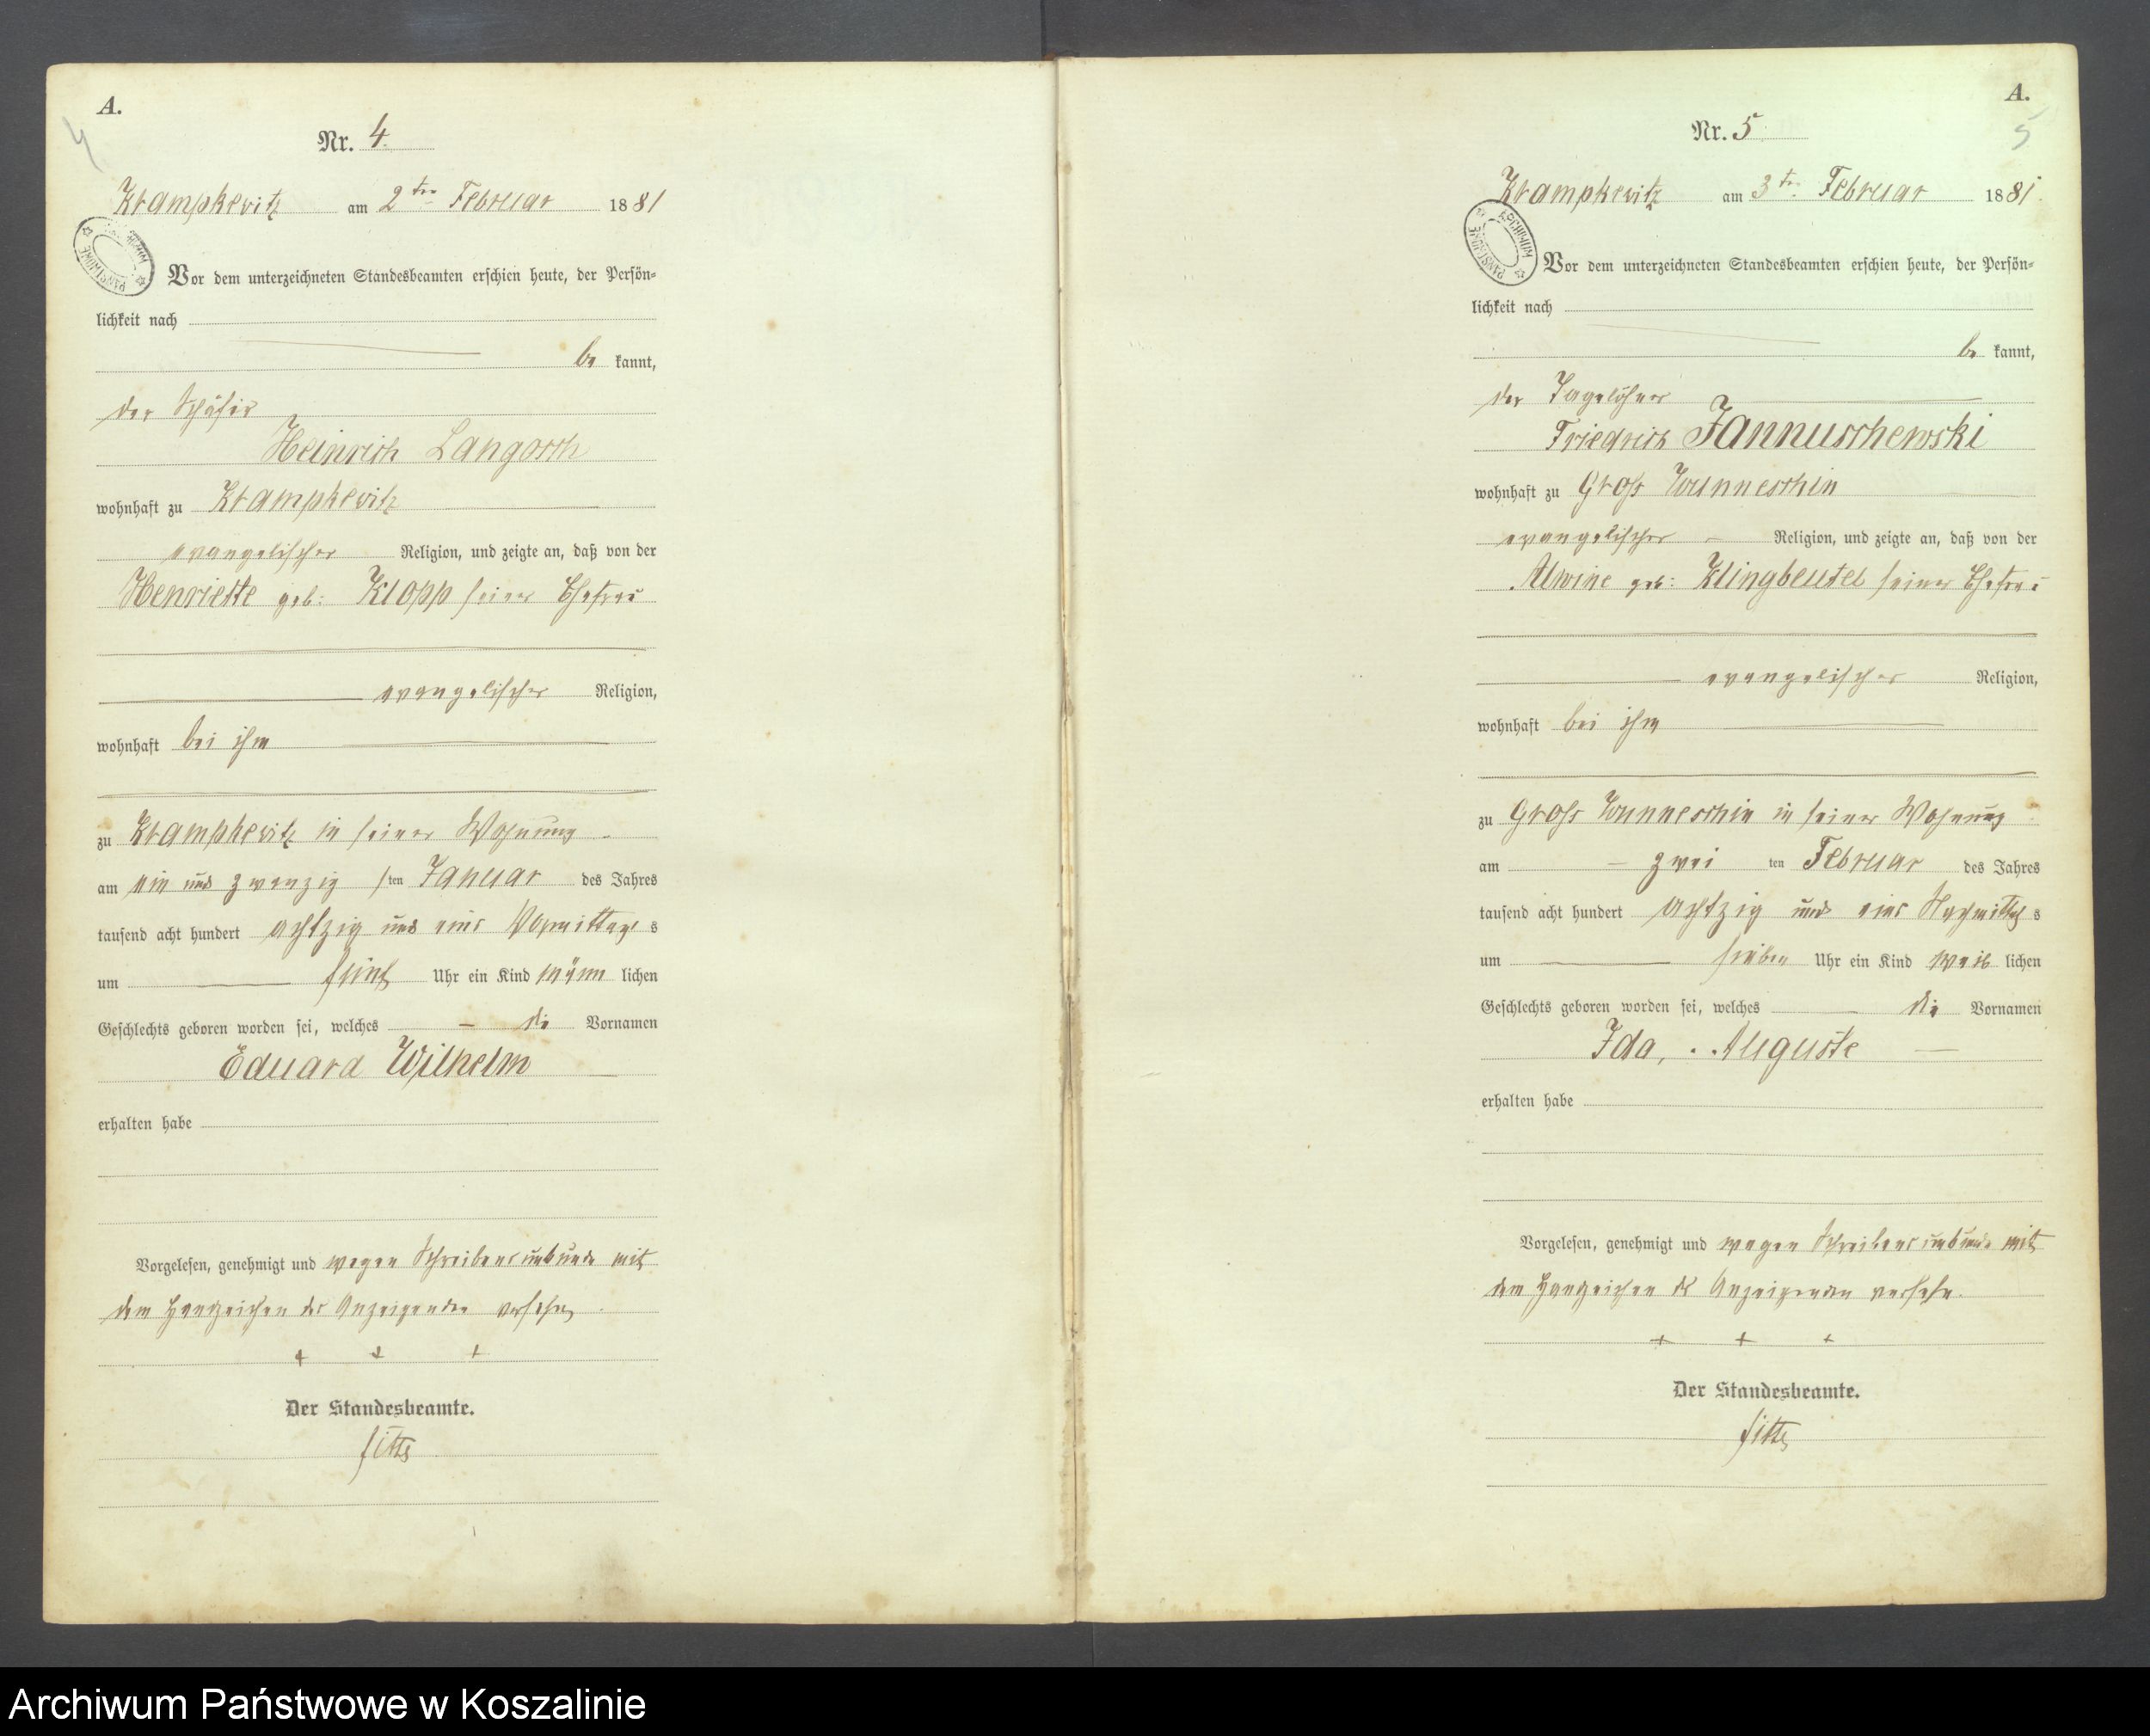 A.
4
Nr. 4.
Krampkewitz am 2ten Februar 1881
Vor dem unterzeichneten Standesbeamten erschien heute, der Persön=
lichkeit nach
be kannt,
der Schäfer
Heinrich Langosch
wohnhaft zu Krampkewitz
evangelischer Religion, und zeigte an, daß von der
Henriette geb: Klopp seiner Ehefrau
evangelischer Religion,
wohnhaft bei ihm
zu Krampkewitz in seiner Wohnung
am ein und zwanzig sten Januar des Jahres
tausend acht hundert achtzig und eins Vormittags
um fünf Uhr ein Kind männ lichen
Geschlechts geboren worden sei, welches die Vornamen
Eduard Wilhelm
erhalten habe
Vorgelesen, genehmigt und wegen Schreibensunkunde mit
dem Handzeichen des Anzeigenden versehen.
+ + +
Der Standesbeamte.
A.
5
Nr. 5.
Krampkewitz am 3ten Februar 1881.
ARCHIWUM PAŃSTWOWE
Vor dem unterzeichneten Standesbeamten erschien heute, der Persön=
lichkeit nach
be kannt,
der Tagelöhner
Friedrich Jannuschewski
wohnhaft zu Gross Wunneschin
evangelischer Religion, und zeigte an, daß von der
Alwine geb: Klingbeutel seiner Ehefrau
evangelischer Religion,
wohnhaft bei ihm
zu Gross Wunneschin in seiner Wohnung
am zwei ten Februar des Jahres
tausend acht hundert achtzig und eins Nachmittags
um sieben Uhr ein Kind weib lichen
Geschlechts geboren worden sei, welches die Vornamen
Ida, Auguste
erhalten habe
Vorgelesen, genehmigt und wegen Schreibensunkunde mit
dem Handzeichen des Anzeigenden versehen.
+ + +
Der Standesbeamte.
Archiwum Państwowe w Koszalinie